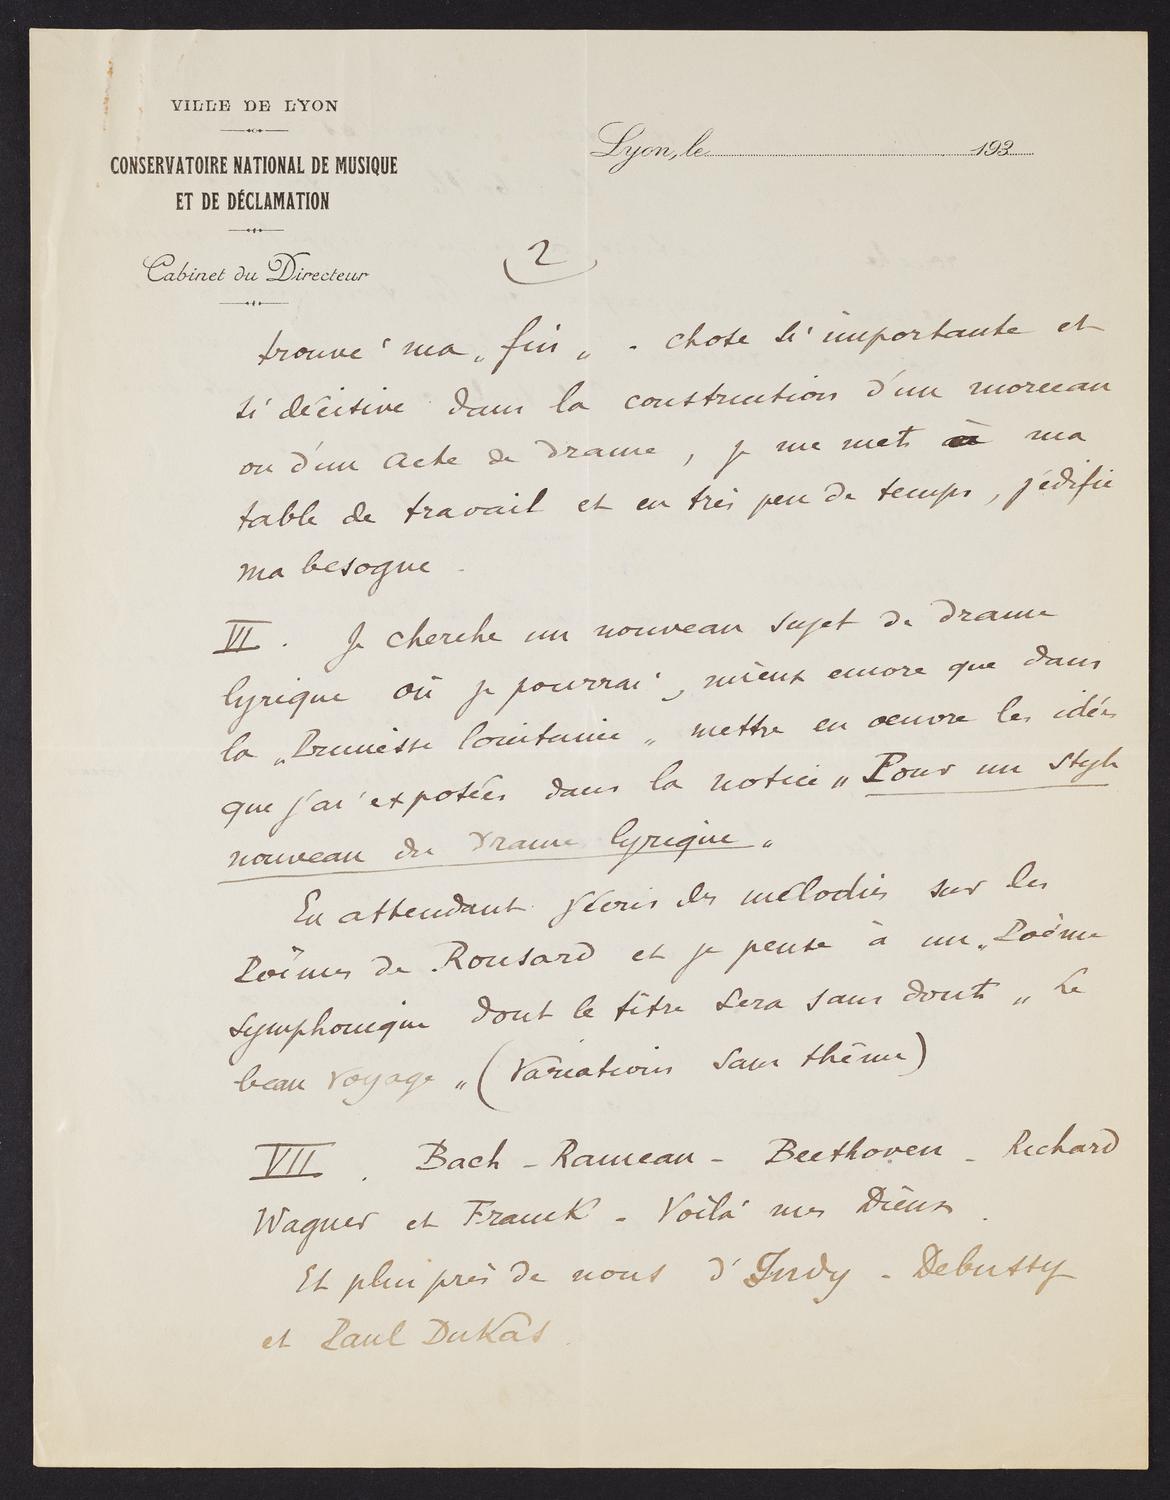 VILLE DE LYON
CONSERVATOIRE NATIONAL DE MUSIQUE
ET DE DÉCLAMATION
Cabinet du Directeur
Lyon, le 193
2
trouvé ma „ fin „ - chose si importante et
si décisive dans la construction d'un morceau
ou d'un acte de drame, je me mets à ma
table de travail et en très peu de temps, j'édifie
ma besogne.
VI. Je cherche un nouveau sujet de drame
lyrique où je pourrai, mieux encore que dans
la „ Princesse lointaine „ mettre en oeuvre les idées
que j'ai exposées dans la notice „ Pour un style
nouveau du Drame lyrique „
En attendant j'écris des mélodies sur les
Poèmes de Ronsard et je pense à un „ Poème
symphonique dont le titre sera sans doute „ Le
beau voyage „ (Variations sans thème)
VII. Bach - Rameau - Beethoven - Richard
Wagner et Franck - Voilà mes Dieux.
Et plus près de nous d'Indy - Debussy
et Paul Dukas.